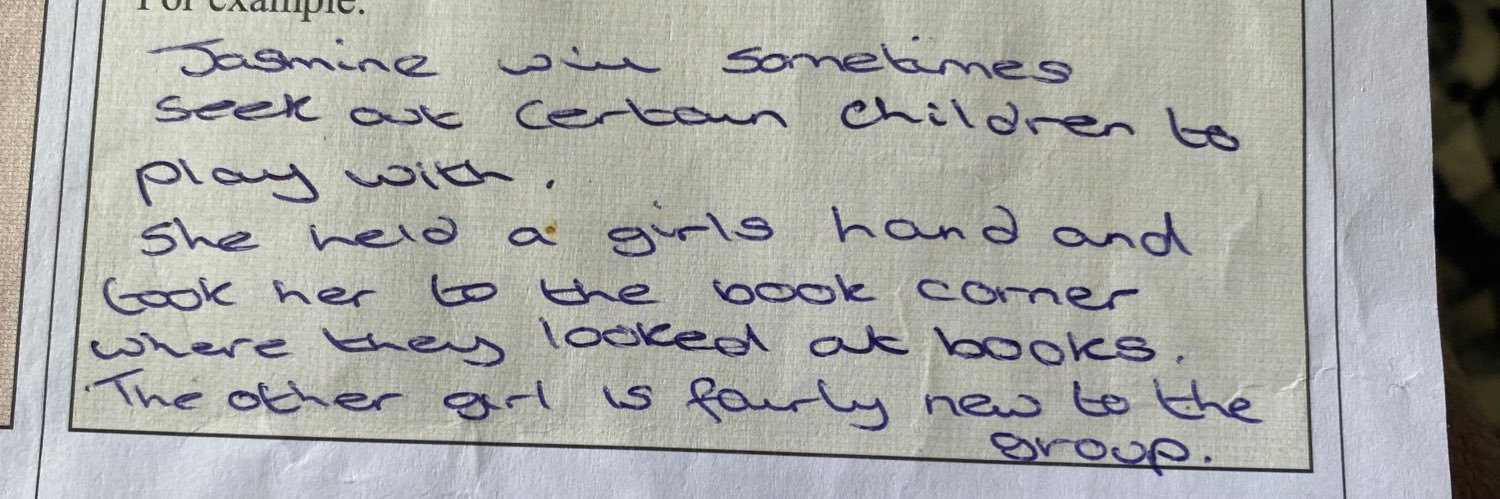 For example:
Jasmine will sometimes
seek out certain children to
play with.
She held a girls hand and
took her to the book corner
where they looked at books.
The other girl is fairly new to the
group.